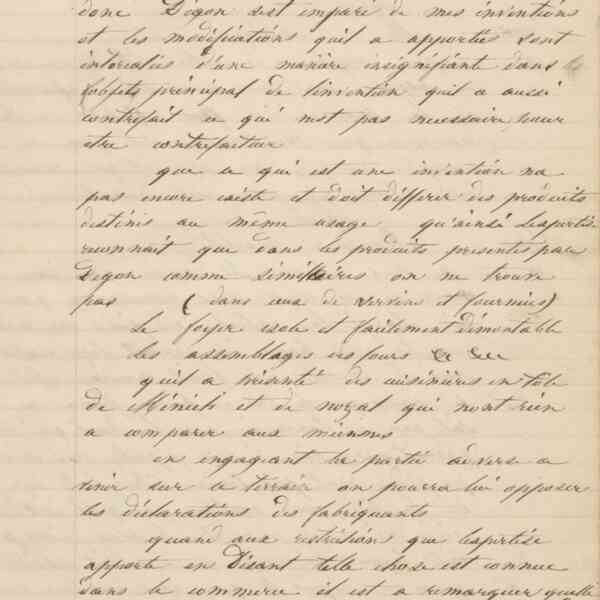 donc Degon s'est emparé de mes inventions
et les modifications qu'il a apportées sont
intercalées d'une manière insignifiante dans les
objets principal de l'invention qu'il a aussi
contrefait ce qui n'est pas necessaire pour
etre contrefacteur
que ce qui est une invention na
pas encore existé et doit différer des produits
destinés au même usage qu'ainsi l'expertise
reconnait que dans les produits presentes par
Degon comme similaires on ne trouve
pas ( dans ceux de Vervins et fourmies)
Le foyer isole et facilement démontable
les assemblages des fours
qu'il a présenté des cuisinières en tôle
de et de qui n'ont rien
a comparer aux miennes
en engageant la partie adverse a
tenir sur ce terrain on pourra lui opposer
les déclarations des fabriquants
quand aux restriction que l'expertise
apporte en disant telle chose est connue
dans le commerce il est a remarquer qu'elle